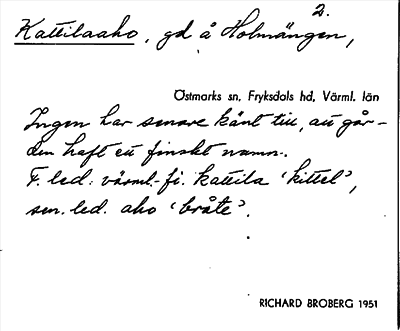 2.
Kattilaaho, gd å Holmängen,
Östmarks sn, Fryksdals hd, Värml. län
Ingen har senare känt till, att går-
den haft ett finskt namn.
F. led: värml.-fi. kattila 'kittel',
sen. led. aho 'bråte'.
RICHARD BROBERG 1951